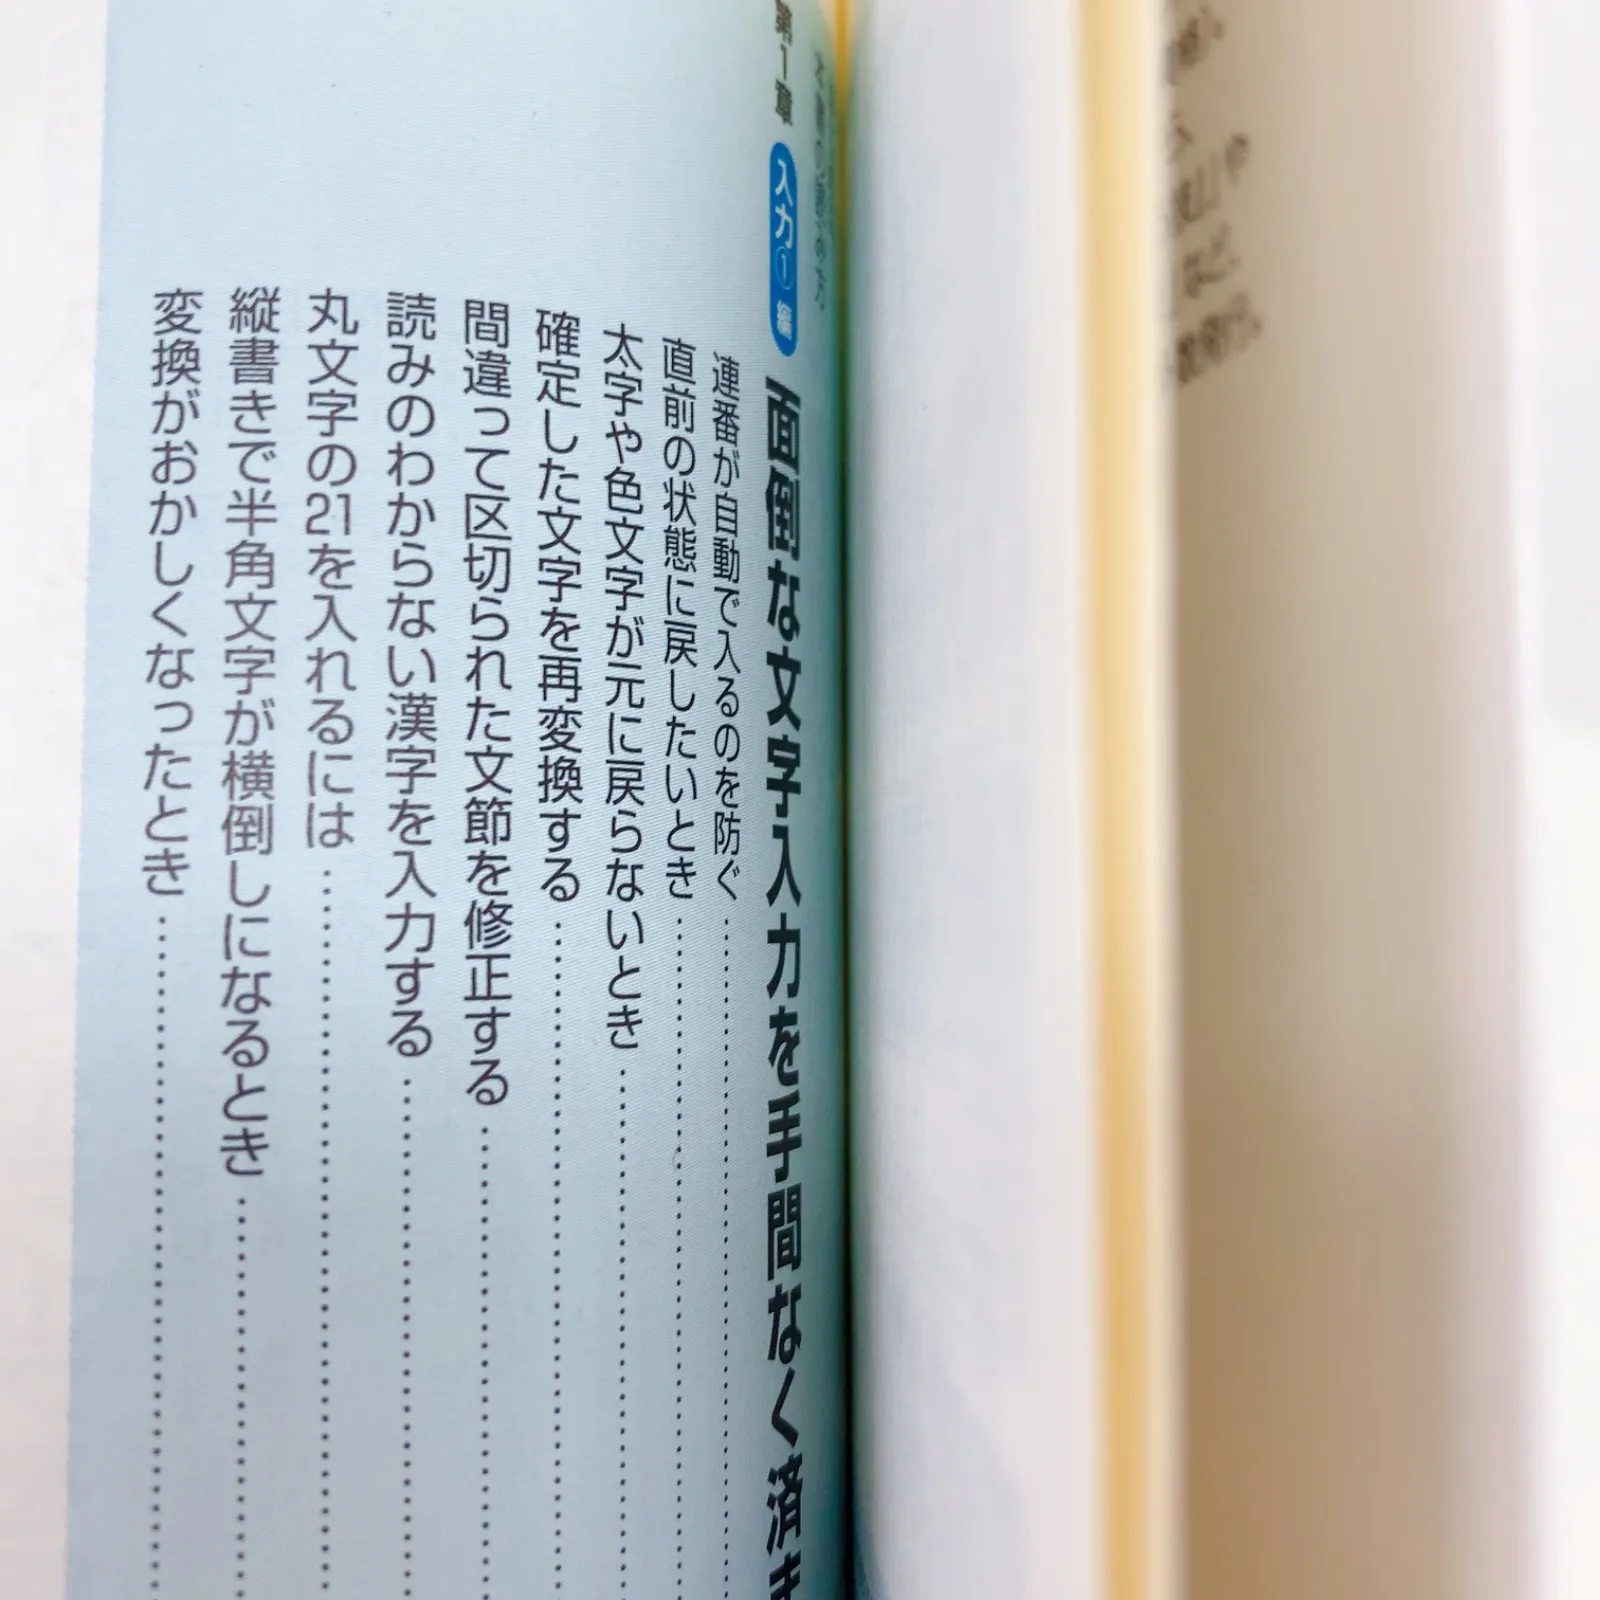 第1章 入力①編 面倒な文字入力を手間なく済ま
連番が自動で入るのを防ぐ
直前の状態に戻したいとき
太字や色文字が元に戻らないとき
確定した文字を再変換する
間違って区切られた文節を修正する
読みのわからない漢字を入力する
丸文字の21を入れるには
縦書きで半角文字が横倒しになるとき
変換がおかしくなったとき